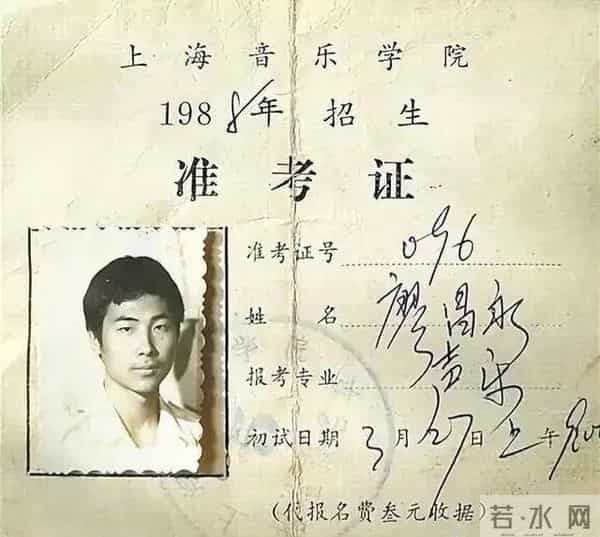 上海音乐学院
1988年招生
准考证
准考证号 096
姓名 廖昌永
报考专业 声乐
初试日期 3月27日上午8:00
(代报名费叁元收据)
若·水网